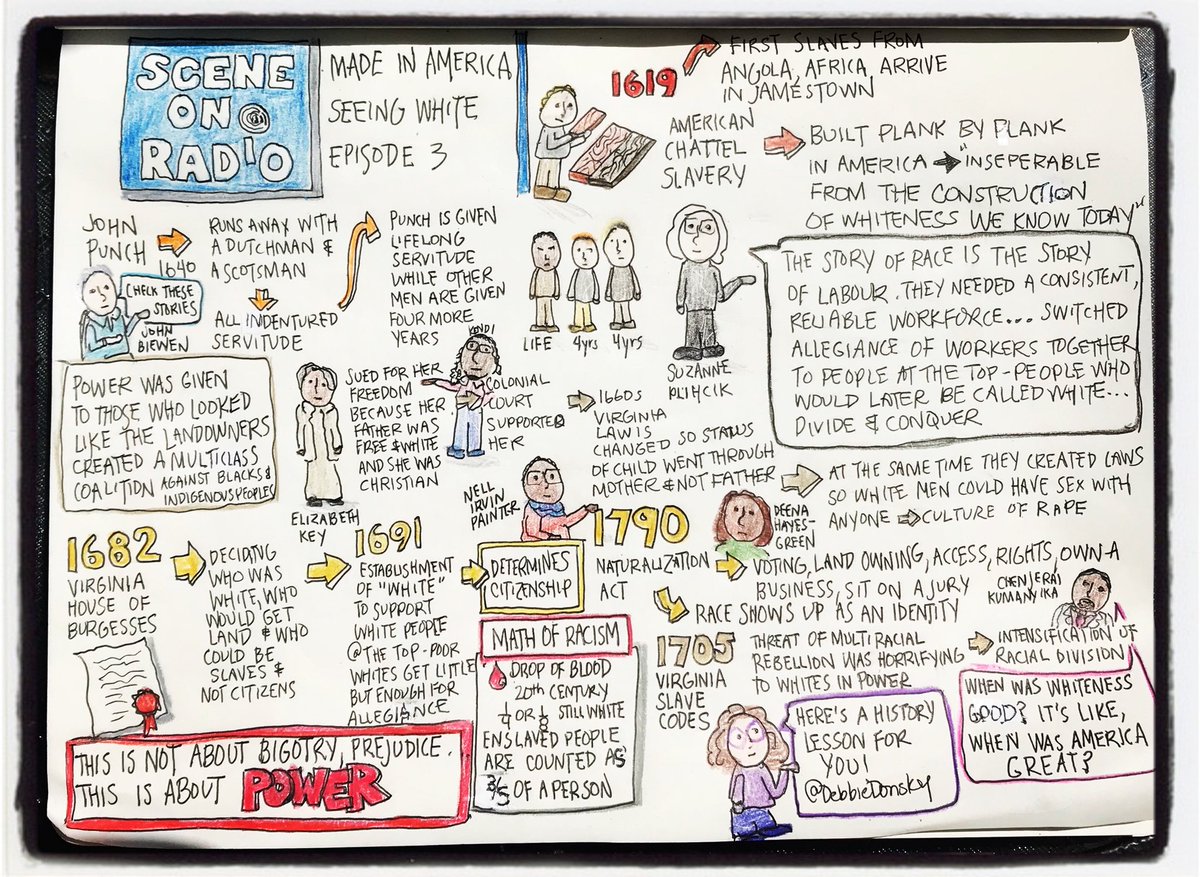 SCENE
ON
RADIO
MADE IN AMERICA
SEEING WHITE
EPISODE 3
1619
FIRST SLAVES FROM
ANGOLA, AFRICA ARRIVE
IN JAMESTOWN
AMERICAN
CHATTEL
SLAVERY
BUILT PLANK BY PLANK
IN AMERICA → "INSEPERABLE
FROM THE CONSTRUCTION
OF WHITENESS WE KNOW TODAY"
JOHN
PUNCH
1640
RUNS AWAY WITH
A DUTCHMAN &
A SCOTSMAN
ALL INDENTURED
SERVITUDE
PUNCH IS GIVEN
LIFELONG
SERVITUDE
WHILE OTHER
MEN ARE GIVEN
FOUR MORE
YEARS
LIFE 4yrs 4yrs
CHECK THESE
STORIES
JOHN
BIEWEN
SUZANNE
PLIHCIK
THE STORY OF RACE IS THE STORY
OF LABOUR. THEY NEEDED A CONSISTENT,
RELIABLE WORKFORCE... SWITCHED
ALLEGIANCE OF WORKERS TOGETHER
TO PEOPLE AT THE TOP-PEOPLE WHO
WOULD LATER BE CALLED WHITE...
DIVIDE & CONQUER
POWER WAS GIVEN
TO THOSE WHO LOOKED
LIKE THE LANDOWNERS
CREATED A MULTICLASS
COALITION AGAINST BLACKS &
INDIGENOUS PEOPLES
ELIZABETH
KEY
SUED FOR HER
FREEDOM
BECAUSE HER
FATHER WAS
FREE & WHITE
AND SHE WAS
CHRISTIAN
KENDI
COLONIAL
COURT
SUPPORTED
HER
1660S
VIRGINIA
LAW IS
CHANGED SO STATUS
OF CHILD WENT THROUGH
MOTHER & NOT FATHER
AT THE SAME TIME THEY CREATED LAWS
SO WHITE MEN COULD HAVE SEX WITH
ANYONE ⇒ CULTURE OF RAPE
DEENA
HAYES-
GREEN
NELL
IRVIN
PAINTER
1682
VIRGINIA
HOUSE OF
BURGESSES
DECIDING
WHO WAS
WHITE, WHO
WOULD GET
LAND & WHO
COULD BE
SLAVES &
NOT CITIZENS
1691
ESTABLISHMENT
OF "WHITE"
TO SUPPORT
WHITE PEOPLE
@ THE TOP-POOR
WHITES GET LITTLE
BUT ENOUGH FOR
ALLEGIANCE
DETERMINES
CITIZENSHIP
1790
NATURALIZATION
ACT
VOTING, LAND OWNING, ACCESS, RIGHTS, OWN A
BUSINESS, SIT ON A JURY
RACE SHOWS UP AS AN IDENTITY
CHENJERAI
KUMANYIKA
1705
VIRGINIA
SLAVE
CODES
THREAT OF MULTI RACIAL
REBELLION WAS HORRIFYING
TO WHITES IN POWER
INTENSIFICATION OF
RACIAL DIVISION
MATH OF RACISM
DROP OF BLOOD
20th CENTURY
1/4 OR 1/8 STILL WHITE
ENSLAVED PEOPLE
ARE COUNTED AS
3/5 OF A PERSON
WHEN WAS WHITENESS
GOOD? IT'S LIKE,
WHEN WAS AMERICA
GREAT?
HERE'S A HISTORY
LESSON FOR
YOU!
@DebbieDonsky
THIS IS NOT ABOUT BIGOTRY, PREJUDICE.
THIS IS ABOUT POWER